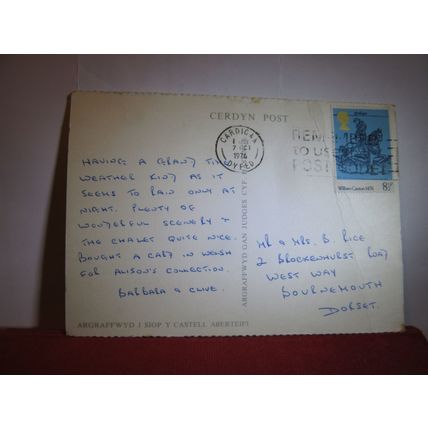 CERDYN POST
CARDIGAN
7 OCT
1976
DYFED
REMEMBER
TO USE
POST
William Caxton 1476
8½
HAVING A GRAND TIME
WEATHER KIND AS IT
SEEMS TO RAIN ONLY AT
NIGHT. PLENTY OF
WONDERFUL SCENERY &
THE CHALET QUITE NICE.
BOUGHT A CARD IN WELSH
FOR ALISON'S CONNECTION.
BARBARA & CLIVE.
MR & MRS. B. RICE
2 BROCKENHURST ROAD
WEST WAY
BOURNEMOUTH
DORSET.
ARGRAFFWYD GAN JUDGES CYF
ARGRAFFWYD I SIOP Y CASTELL ABERTEIFI